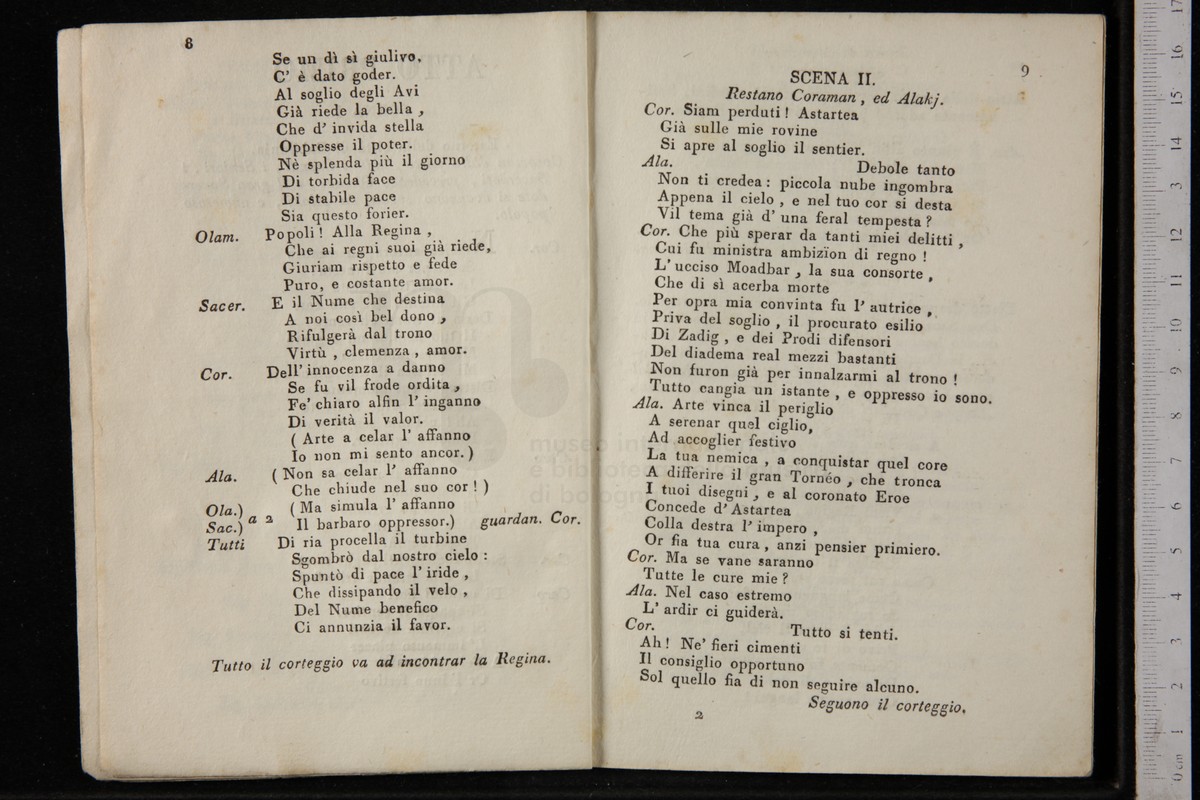 8
Se un dì sì giulivo,
C' è dato goder.
Al soglio degli Avi
Già riede la bella,
Che d' invida stella
Oppresse il poter.
Nè splenda più il giorno
Di torbida face
Di stabile pace
Sia questo forier.
Olam. Popoli! Alla Regina,
Che ai regni suoi già riede,
Giuriam rispetto e fede
Puro, e costante amor.
Sacer. E il Nume che destina
A noi così bel dono,
Rifulgerà dal trono
Virtù, clemenza, amor.
Cor. Dell' innocenza a danno
Se fu vil frode ordita,
Fe' chiaro alfin l' inganno
Di verità il valor.
( Arte a celar l' affanno
Io non mi sento ancor. )
Ala. ( Non sa celar l' affanno
Che chiude nel suo cor! )
Ola.) ( Ma simula l' affanno
Sac.) a 2 Il barbaro oppressor.) guardan. Cor.
Tutti Di ria procella il turbine
Sgombrò dal nostro cielo:
Spuntò di pace l' iride,
Che dissipando il velo,
Del Nume benefico
Ci annunzia il favor.
Tutto il corteggio va ad incontrar la Regina.
9
SCENA II.
Restano Coraman, ed Alakj.
Cor. Siam perduti! Astartea
Già sulle mie rovine
Si apre al soglio il sentier.
Ala. Debole tanto
Non ti credea: piccola nube ingombra
Appena il cielo, e nel tuo cor si desta
Vil tema già d' una feral tempesta?
Cor. Che più sperar da tanti miei delitti,
Cui fu ministra ambizïon di regno!
L' ucciso Moadbar, la sua consorte,
Che di sì acerba morte
Per opra mia convinta fu l' autrice,
Priva del soglio, il procurato esilio
Di Zadig, e dei Prodi difensori
Del diadema real mezzi bastanti
Non furon già per innalzarmi al trono!
Tutto cangia un istante, e oppresso io sono.
Ala. Arte vinca il periglio
A serenar quel ciglio,
Ad accoglier festivo
La tua nemica, a conquistar quel core
A differire il gran Tornéo, che tronca
I tuoi disegni, e al coronato Eroe
Concede d' Astartea
Colla destra l' impero,
Or fia tua cura, anzi pensier primiero.
Cor. Ma se vane saranno
Tutte le cure mie?
Ala. Nel caso estremo
L' ardir ci guiderà.
Cor. Tutto si tenti.
Ah! Ne' fieri cimenti
Il consiglio opportuno
Sol quello fia di non seguire alcuno.
Seguono il corteggio.
2